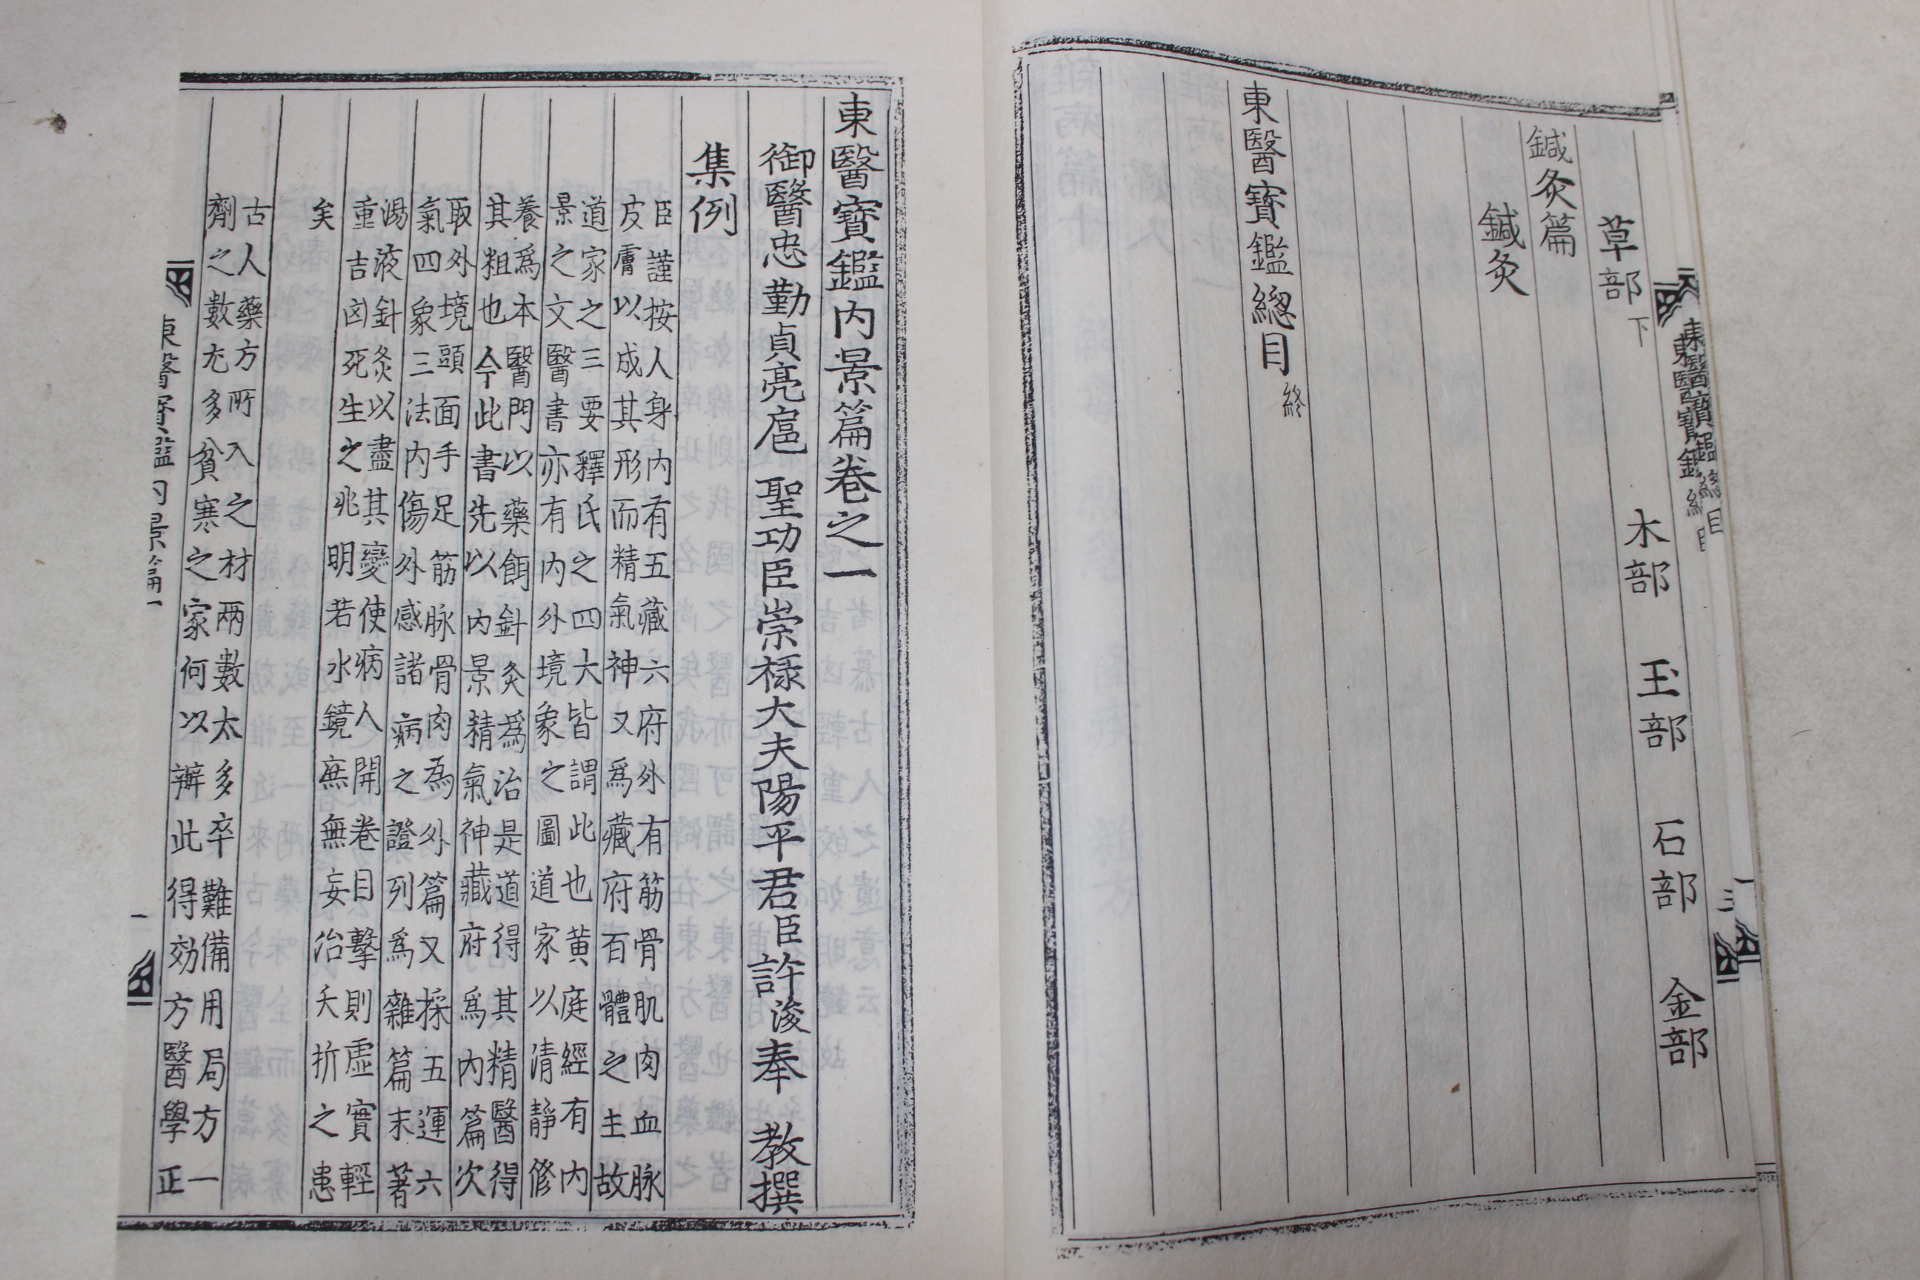 東醫寶鑑總目
三
草部下 木部 玉部 石部 金部
鍼灸篇
鍼灸
東醫寶鑑總目終
東醫寶鑑內景篇卷之一
御醫忠勤貞亮扈聖功臣崇祿大夫陽平君臣許浚奉 教撰
集例
臣謹按人身內有五藏六府外有筋骨肌肉血脉
皮膚以成其形而精氣神又爲藏府百體之主故
道家之三要釋氏之四大皆謂此也黄庭經有內
景之文醫書亦有內外境象之圖道家以清靜修
養爲本醫門以藥餌針灸爲治是道得其精醫得
其粗也今此書先以內景精氣神藏府爲內篇次
取外境頭面手足筋脉骨肉為外篇又採五運六
氣四象三法內傷外感諸病之證列爲雜篇末著
湯液針灸以盡其變使病人開卷目擊則虛實輕
重吉凶死生之兆明若水鏡庶無妄治夭折之患
矣
古人藥方所入之材兩數太多卒難備用局方一
劑之數尤多貧寒之家何以辦此得効方醫學正
東醫寶鑑內景篇一
一